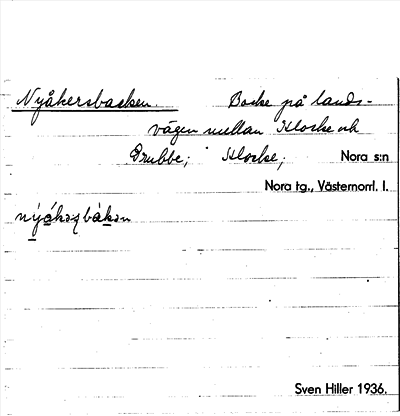 Nyåkersbacken. Backe på lands-
vägen mellan Klocke och
Grubbe; Klocke; Nora s:n
Nora tg., Västernorrl. l.
Sven Hiller 1936.